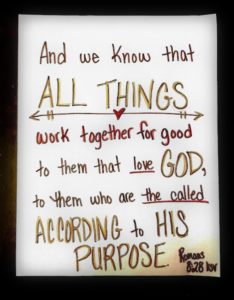 And we know that
ALL THINGS
work together for good
to them that love GOD,
to them who are the called
ACCORDING to HIS
PURPOSE.
Romans
8:28 KJV